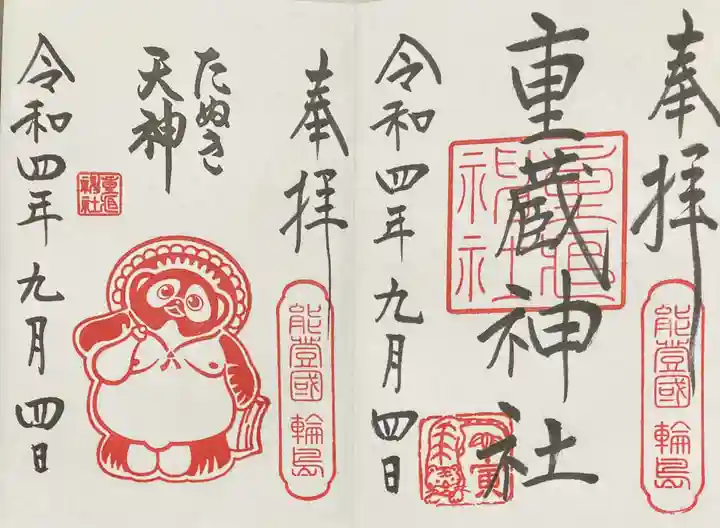 奉拝
重蔵神社
令和四年九月四日
能登國 輪島
奉拝
たぬき
天神
令和四年九月四日
能登國 輪島